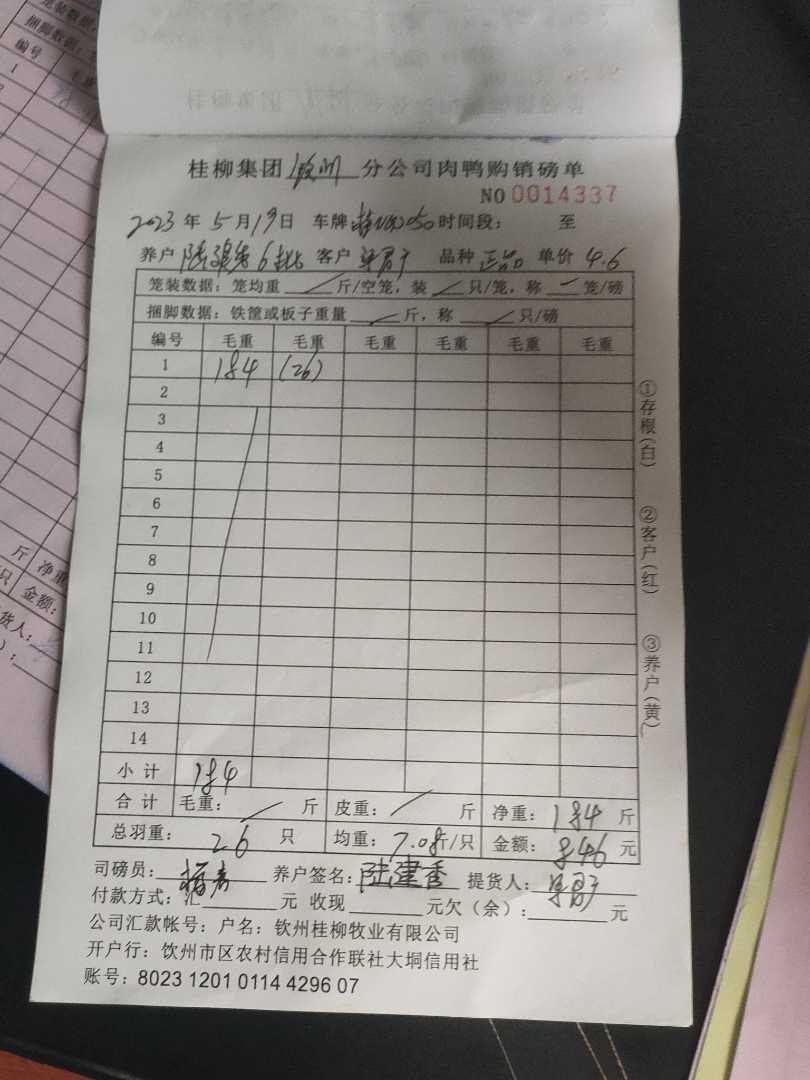 桂柳集团 钦州 分公司肉鸭购销磅单
NO 0014337
2023 年 5 月 19 日 车牌 050 时间段： 至
养户 陆建秀6批 客户 品种 正品 单价 4.6
笼装数据：笼均重 斤/空笼，装 只/笼，称 笼/磅
捆脚数据：铁筐或板子重量 斤，称 只/磅
编号 毛重 毛重 毛重 毛重 毛重 毛重
1 184 (26)
2
3
4
5
6
7
8
9
10
11
12
13
14
小计 184
合计 毛重： 斤 皮重： 斤 净重： 184 斤
总羽重： 26 只 均重： 7.08 斤/只 金额： 846 元
司磅员： 养户签名： 陆建秀 提货人：
付款方式：汇 元 收现 元欠（余）： 元
公司汇款帐号：户名：钦州桂柳牧业有限公司
开户行：饮州市区农村信用合作联社大垌信用社
账号：8023 1201 0114 4296 07
①存根（白）
②客户（红）
③养户（黄）
笼装数据：
捆脚数据：
编号 毛重
1
斤 净重
只 金额：
货人：